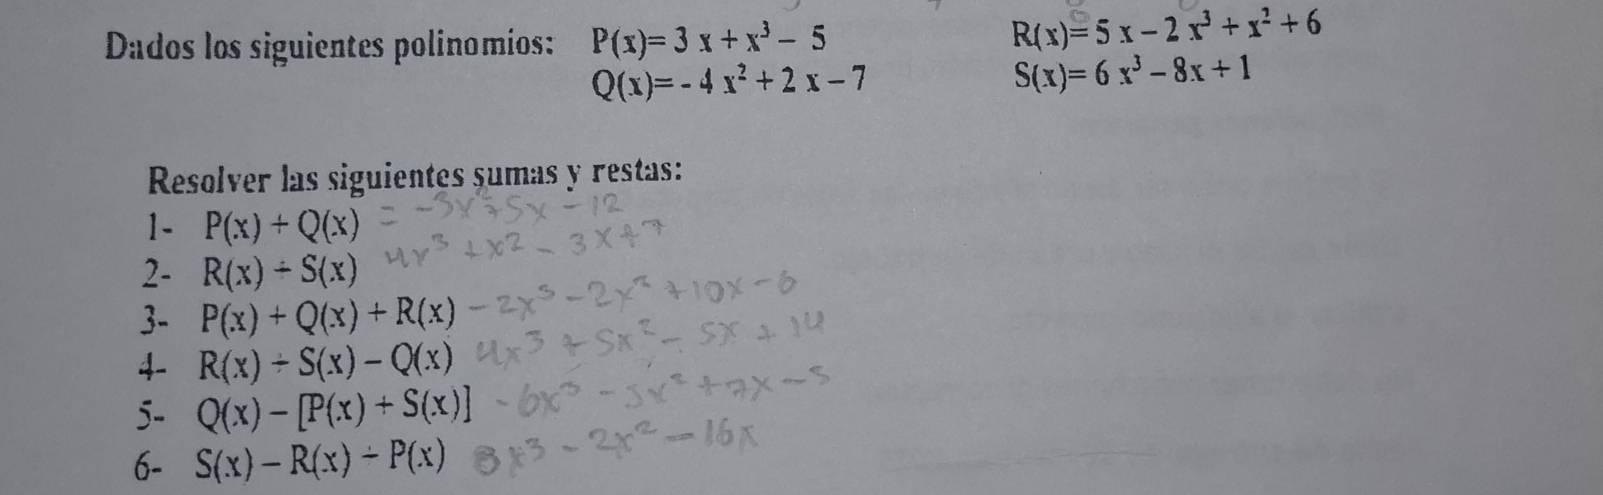 Dados los siguientes polinomios: P(x)= 3 x + x³ - 5 R(x)= 5 x - 2 x³ + x² + 6
Q(x)= - 4 x² + 2 x - 7 S(x)= 6 x³ - 8x + 1
Resolver las siguientes sumas y restas:
1- P(x) + Q(x) = -3x²+5x-12
2- R(x) + S(x) 4x³ + x² - 3x + 7
3- P(x) + Q(x) + R(x) -2x³ - 2x² + 10x - 6
4- R(x) + S(x) - Q(x) 4x³ + 5x² - 5x + 14
5- Q(x) - [P(x) + S(x)] -6x³ - 5x² + 7x - 5
6- S(x) - R(x) + P(x) 8x³ - 2x² - 16x